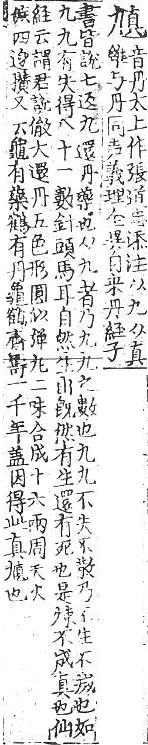 𩲃音丹太上作張道忠深注以九从真
雖与丹同音義理全異自来丹經子
書皆說七返九還丹尊也从九者乃九九之數也九九不失不散乃不生不歲也如
九九有失得八十一數針頭馬耳自然生出既然有生還有死也是殊不成真也仙
經云謂君說徹大還丹五色形圓似弹丸二味合成十六兩周天火
候四邊攢又不龜有藥鶴有丹龜鶴齊壽一千年蓋因得此真𩲃也